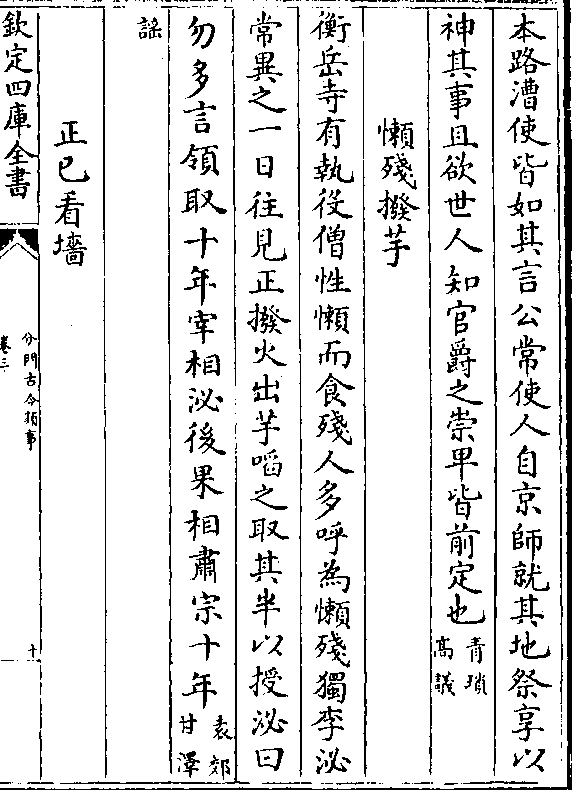 本路漕使皆如其言公常使人自京師就其地祭享以
神其事且欲世人知官爵之崇卑皆前定也青瑣高議
懶殘撥芋
衡岳寺有執役僧性懶而食殘人多呼為懶殘獨李泌
常異之一日往見正撥火出芋啗之取其半以授泌曰
勿多言領取十年宰相泌後果相肅宗十年袁郊甘澤
謡
正己看墻
欽定四庫全書
分門古今類事
卷三
十